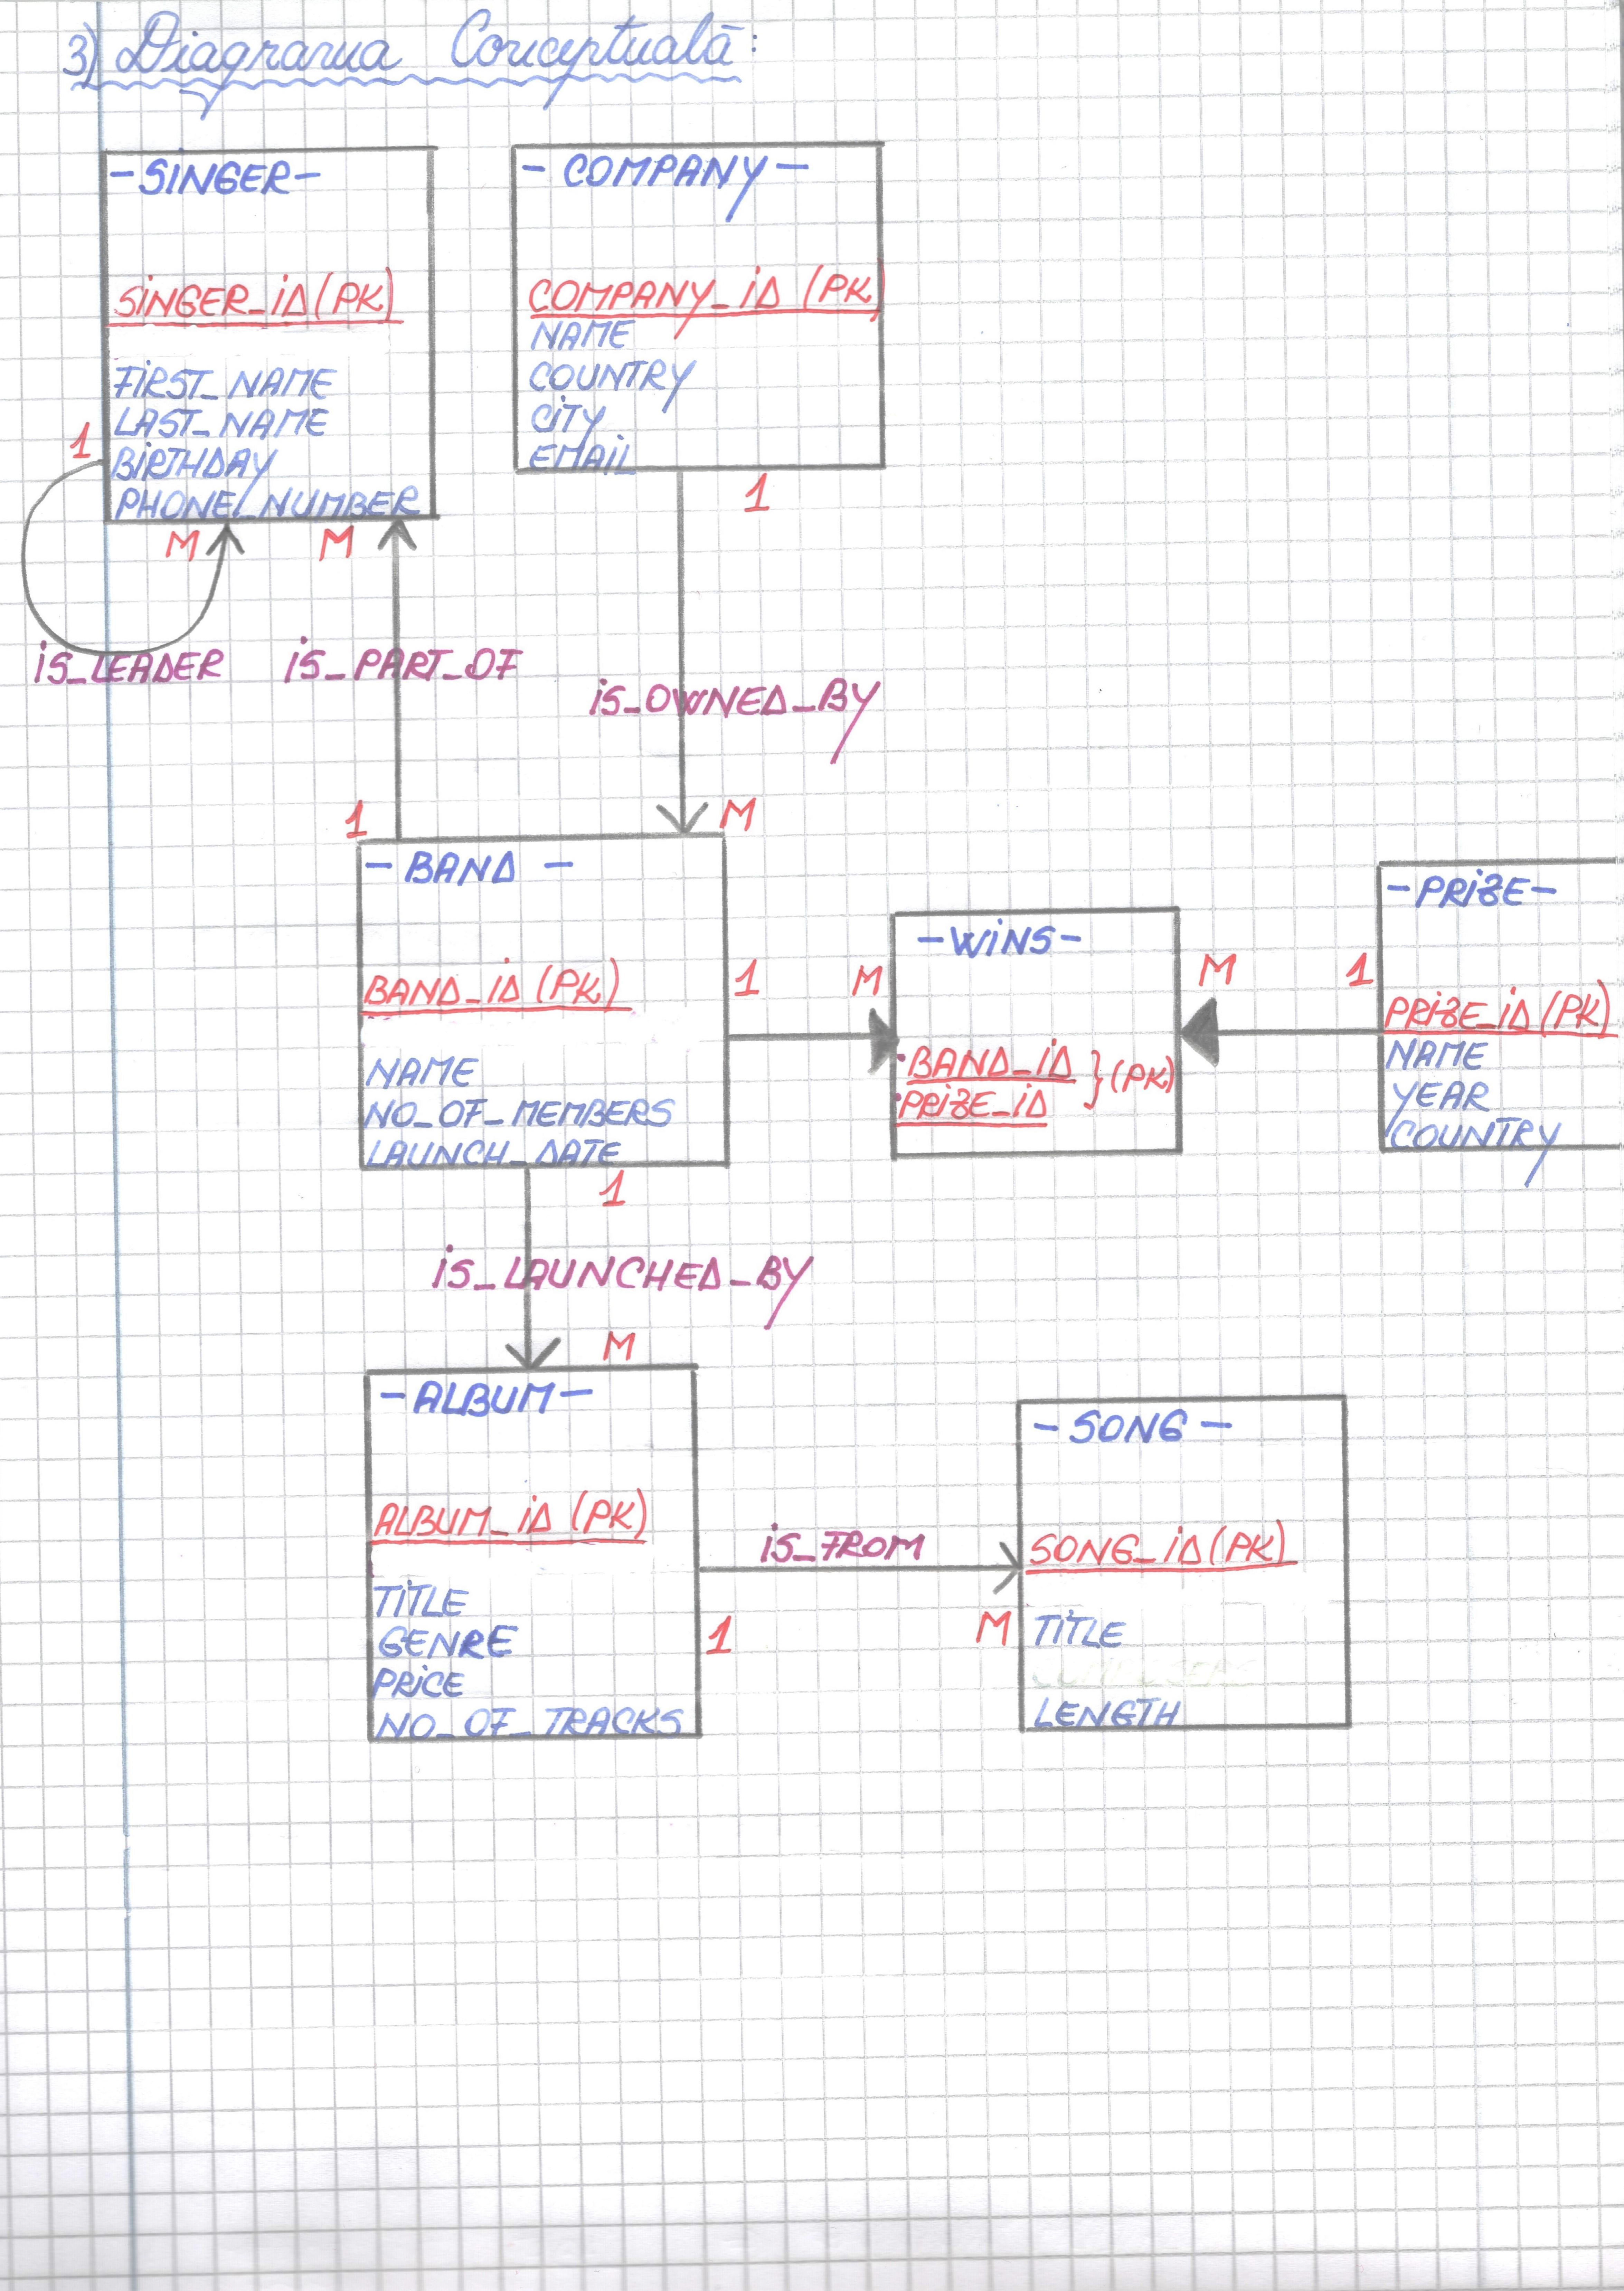 3) Diagrama Conceptuală:
-SINGER-
SINGER_ID (PK)
FIRST_NAME
LAST_NAME
BIRTHDAY
PHONE_NUMBER
1
M
M
IS_LEADER
IS_PART_OF
- COMPANY -
COMPANY_ID (PK)
NAME
COUNTRY
CITY
EMAIL
1
IS_OWNED_BY
1
M
- BAND -
BAND_ID (PK)
NAME
NO_OF_MEMBERS
LAUNCH_DATE
1
M
-WINS-
BAND_ID } (PK)
PRIZE_ID
M
1
-PRIZE-
PRIZE_ID (PK)
NAME
YEAR
COUNTRY
1
IS_LAUNCHED_BY
M
-ALBUM-
ALBUM_ID (PK)
TITLE
GENRE
PRICE
NO_OF_TRACKS
IS_FROM
1
M
- SONG -
SONG_ID (PK)
TITLE
LENGTH